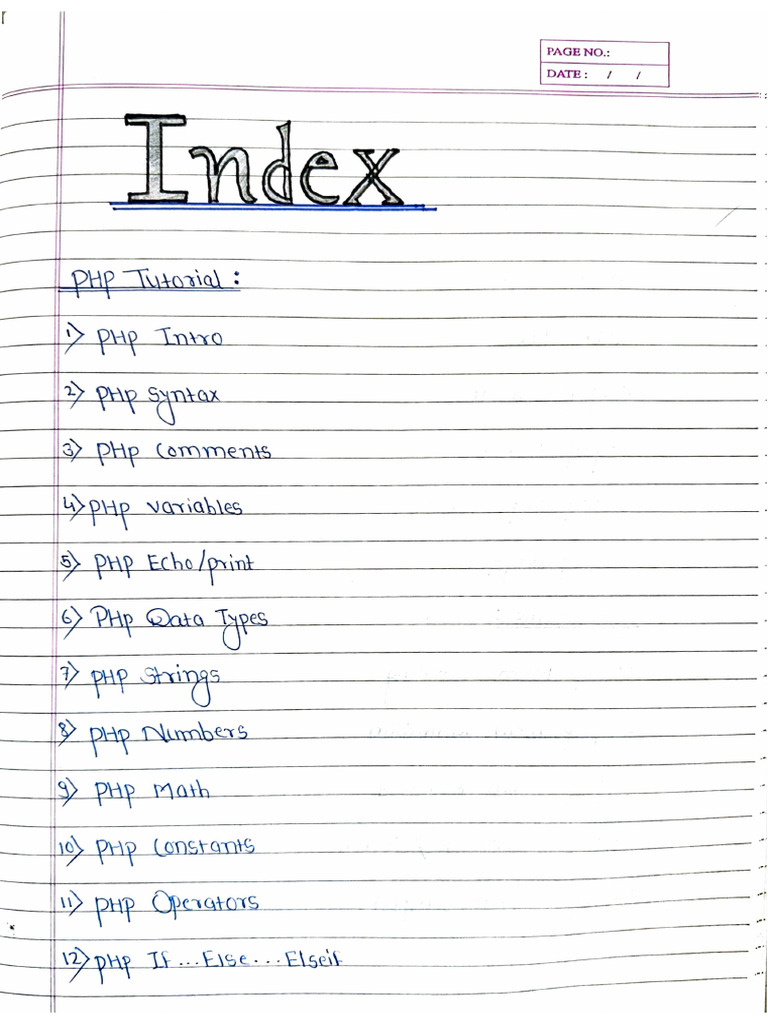 PAGE NO.:
DATE: / /
Index
PHP Tutorial:
1) PHP Intro
2) PHP Syntax
3) PHP Comments
4) PHP Variables
5) PHP Echo/print
6) PHP Data Types
7) PHP Strings
8) PHP Numbers
9) PHP Math
10) PHP Constants
11) PHP Operators
12) PHP If...Else...Elseif